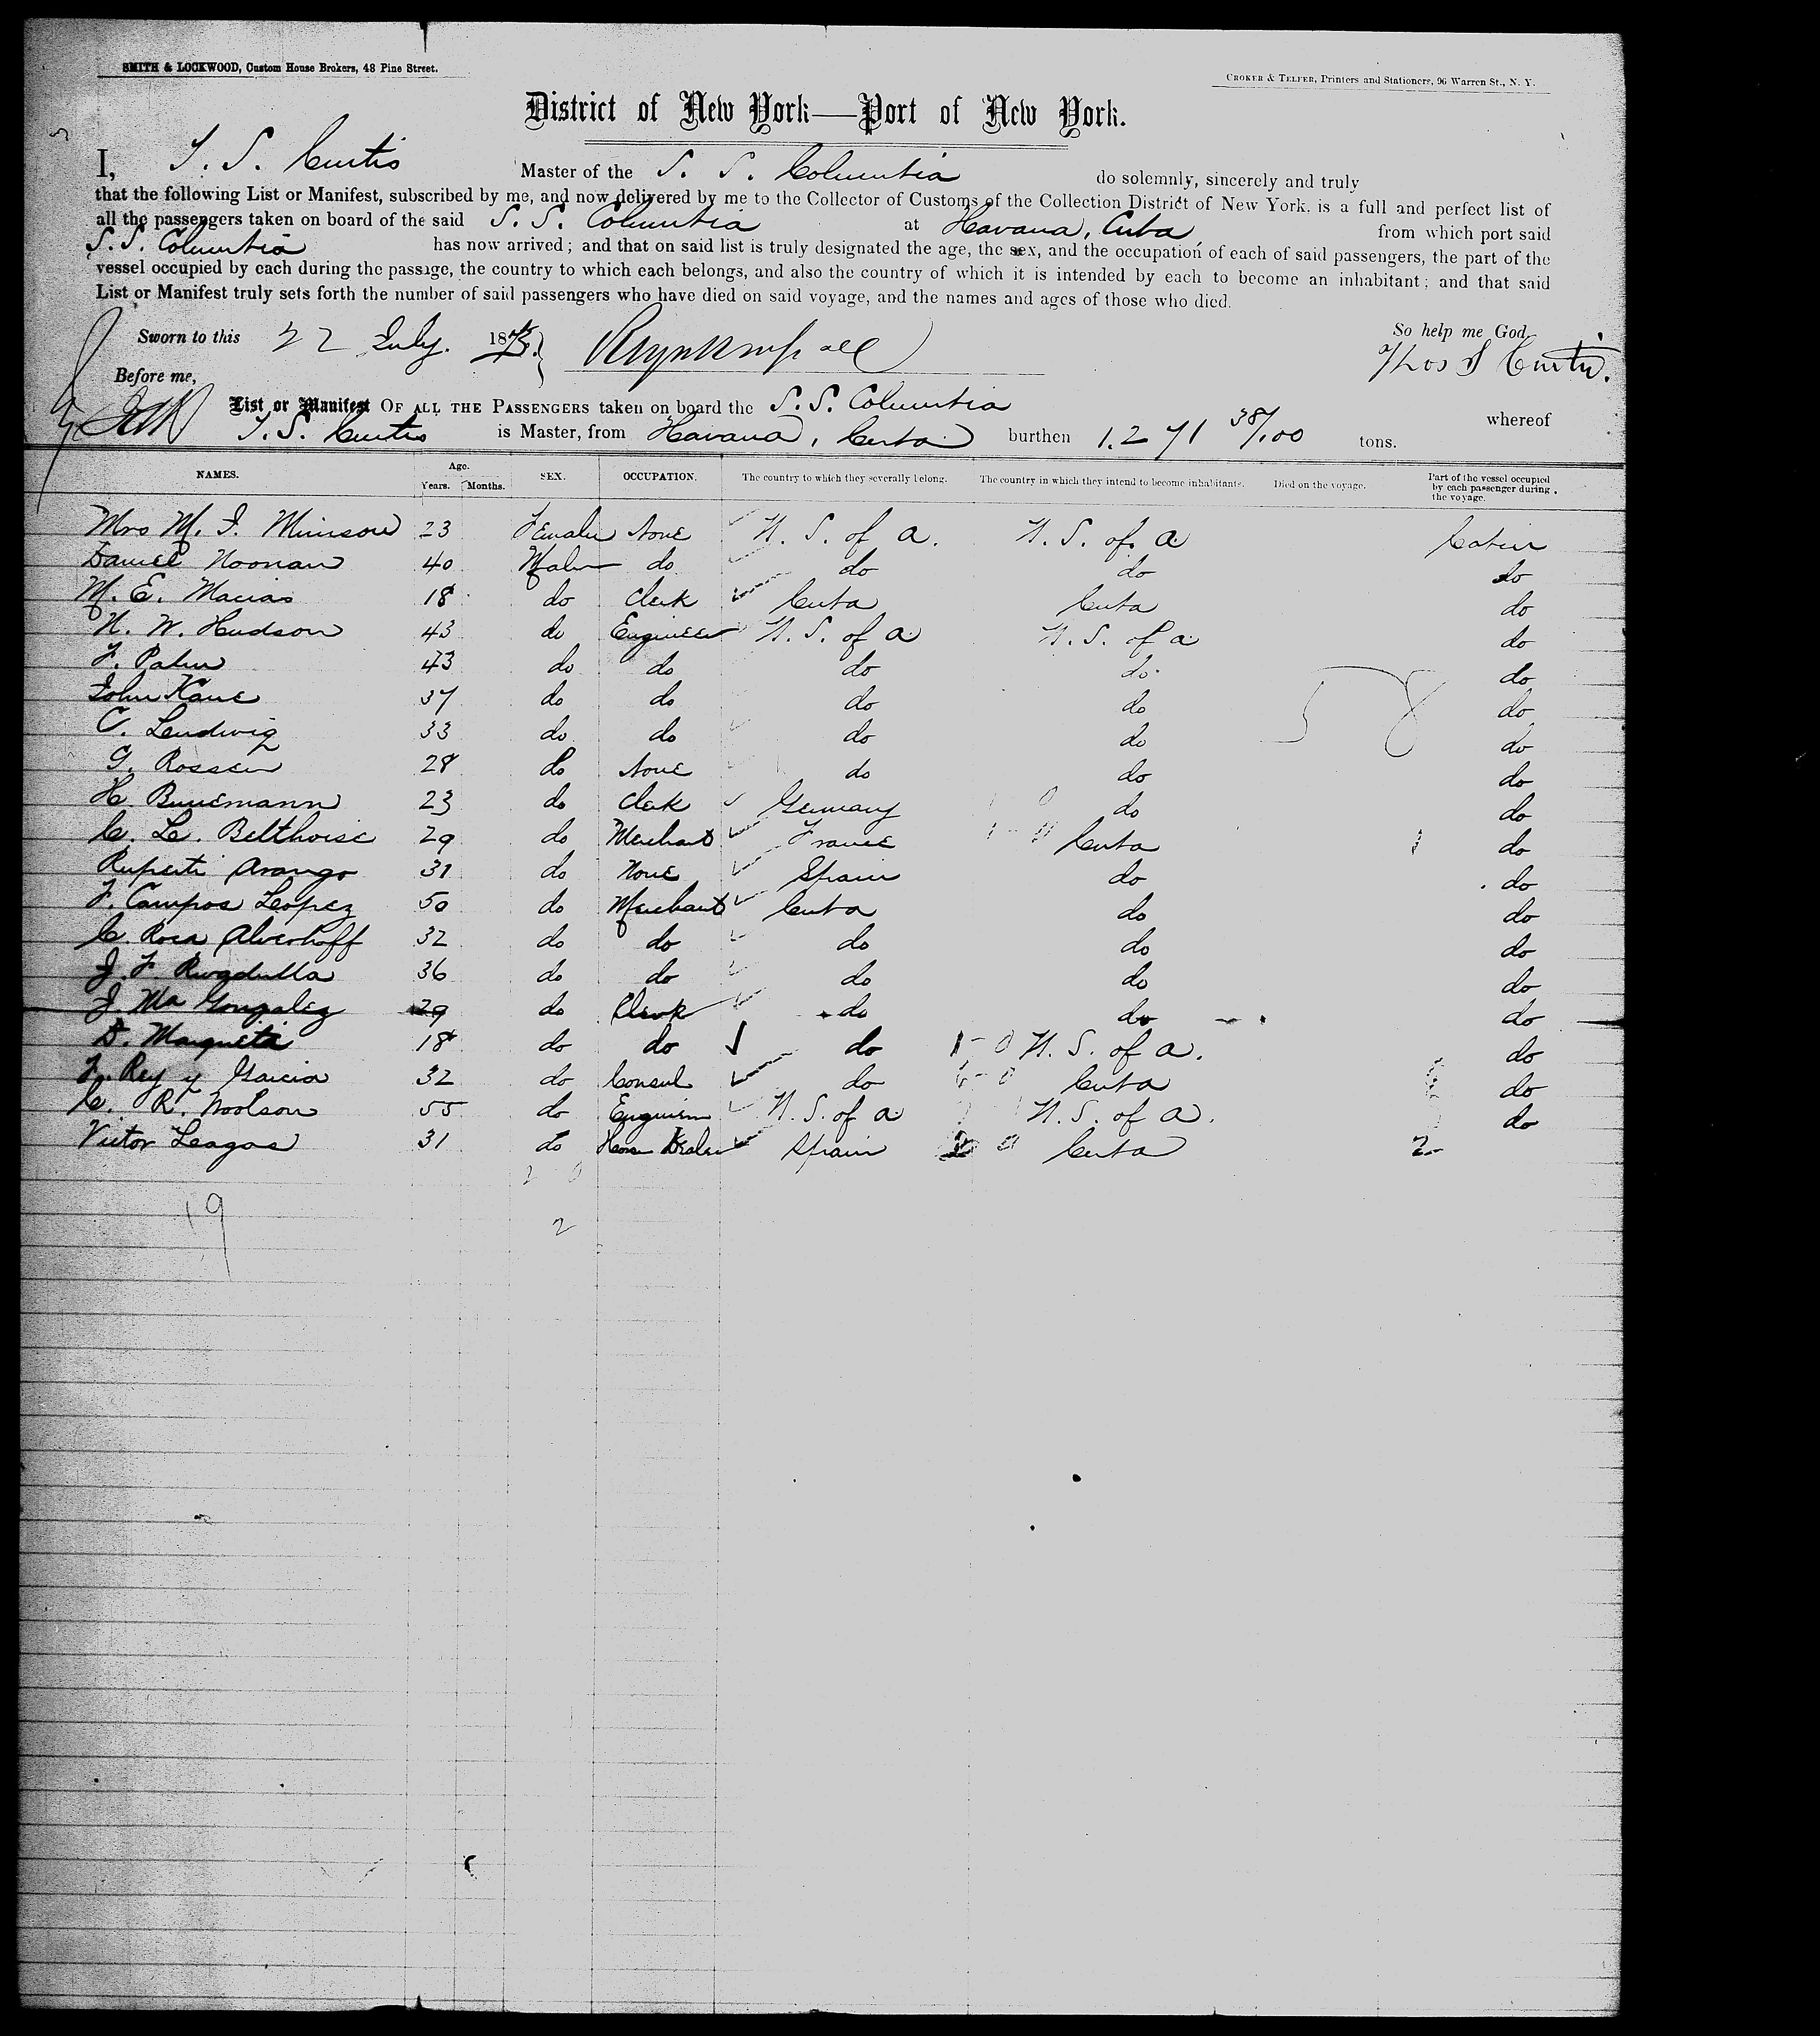 SMITH & LOCKWOOD, Custom House Brokers, 48 Pine Street.
CROKER & TELFER, Printers and Stationers, 96 Warren St., N. Y.
District of New York—Port of New York.
I, T. S. Curtis Master of the S. S. Columbia do solemnly, sincerely and truly
that the following List or Manifest, subscribed by me, and now delivered by me to the Collector of Customs of the Collection District of New York, is a full and perfect list of
all the passengers taken on board of the said S. S. Columbia at Havana, Cuba from which port said
S. S. Columbia has now arrived; and that on said list is truly designated the age, the sex, and the occupation of each of said passengers, the part of the
vessel occupied by each during the passage, the country to which each belongs, and also the country of which it is intended by each to become an inhabitant; and that said
List or Manifest truly sets forth the number of said passengers who have died on said voyage, and the names and ages of those who died.
Sworn to this 22 July. 18 So help me God,
Before me, Thos S Curtis.
List or Manifest OF ALL THE PASSENGERS taken on board the S. S. Columbia whereof
T. S. Curtis is Master, from Havana, Cuba burthen 1.271 38/100 tons.
NAMES. Age. Years. Months. SEX. OCCUPATION. The country to which they severally belong. The country in which they intend to become inhabitants. Died on the voyage. Part of the vessel occupied by each passenger during the voyage.
Mrs M. J. Minson 23 Female None U. S. of a. U. S. of a Cabin
Daniel Noonan 40 Male do do do do
M. E. Macias 18 do Clerk Cuba Cuba do
N. W. Hudson 43 do Engineer U. S. of a U. S. of a do
F. Palm 43 do do do do do
John Kane 37 do do do do do
C. Lendwig 33 do do do do do
G. Rossen 28 do None do do do
H. Bunemann 23 do Clerk Germany do do
C. Le. Belthoise 29 do Merchant France Cuba do
Ruperti Arango 31 do None Spain do do
F. Campos Leopez 50 do Merchant Cuba do do
C. Roca Alverhoff 32 do do do do do
J. F. 36 do do do do do
J. Ma Gonzalez 29 do Clerk do do do
D. Marqueta 18 do do do U. S. of a. do
F. Rey y Garcia 32 do Consul do Cuba do
C. R. Woolson 55 do U. S. of a U. S. of a. do
Victor Leagas 31 do Dealer Spain Cuba
58
19
2